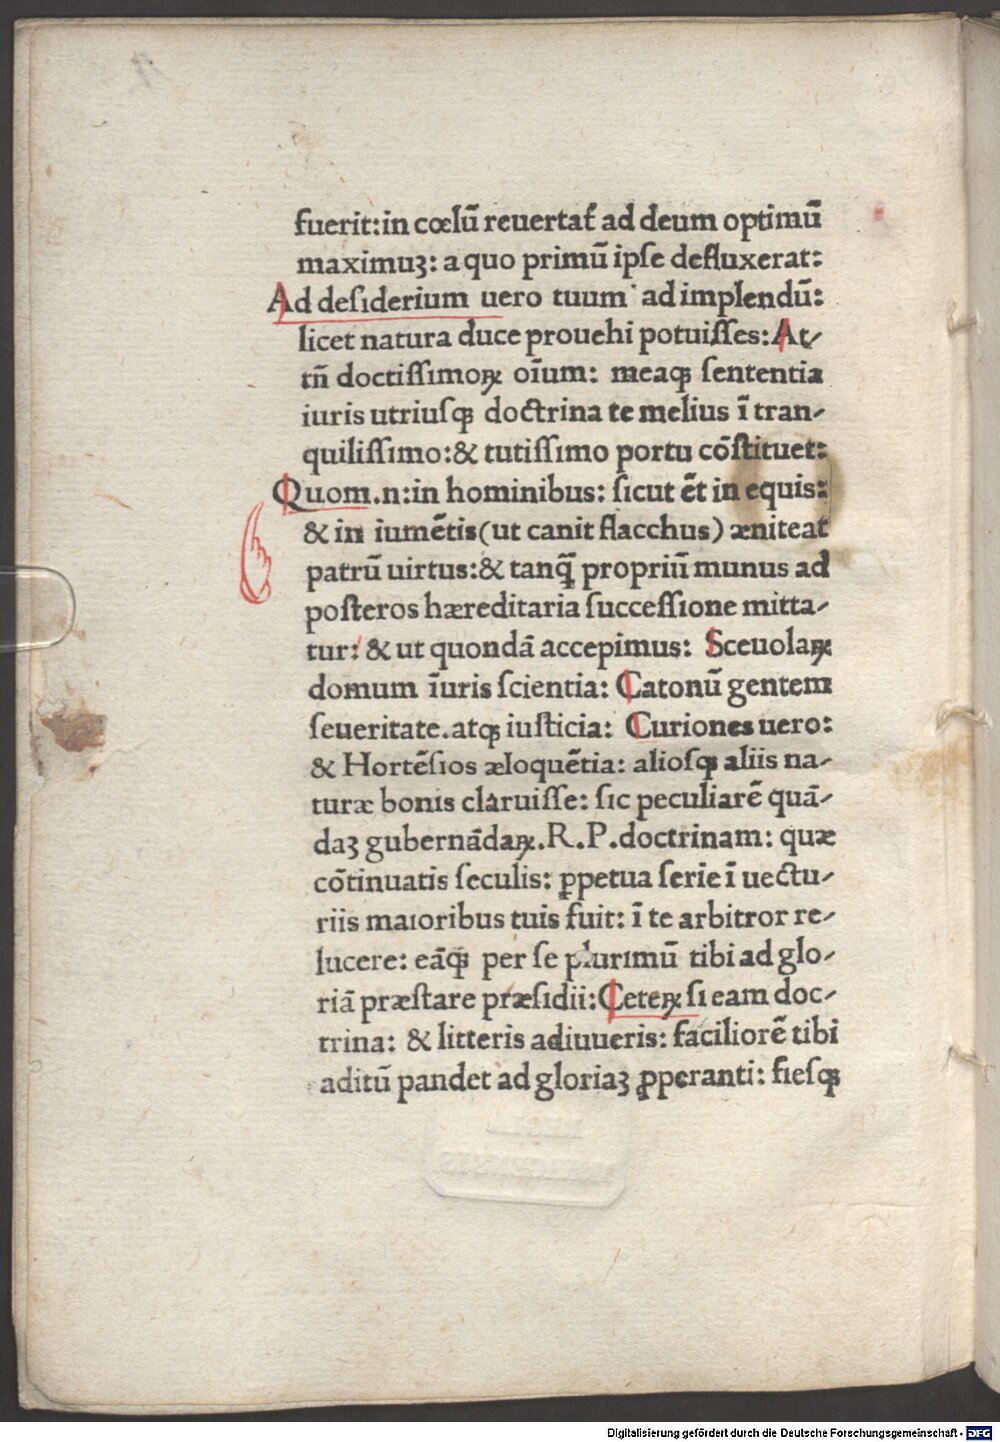 fuerit: in cœlū reuertat᷑ ad deum optimū
maximuꝫ: a quo primū ipſe defluxerat:
Ad deſiderium uero tuum ad implendū:
licet natura duce prouehi potuiſſes: At⸗
tñ doctiſſimoꝝ oīum: meaqꝫ ſententia
iuris utriuſqꝫ doctrina te melius ī tran⸗
quiliſſimo: & tutiſſimo portu cōſtituet:
Quom.n: in hominibus: ſicut ēt in equis:
& in iumētis (ut canit flacchus) æniteat
patrū uirtus: & tanq̄ꝫ propriū munus ad
poſteros hæreditaria ſucceſſione mitta⸗
tur: & ut quondā accepimus: Sceuolaꝝ
domum iuris ſcientia: Catonū gentem
ſeueritate. atqꝫ iuſticia: Curiones uero:
& Hortēſios æloquētia: alioſqꝫ aliis na⸗
turæ bonis claruiſſe: ſic peculiarē quā⸗
daꝫ gubernādaꝝ. R. P. doctrinam: quæ
cōtinuatis ſeculis: ꝑpetua ſerie ī uectu⸗
riis maioribus tuis fuit: ī te arbitror re⸗
lucere: eāqꝫ per ſe plurimū tibi ad glo⸗
riā præſtare præſidii: Ceteꝝ ſi eam doc⸗
trina: & litteris adiuueris: faciliorē tibi
aditū pandet ad gloriaꝫ ꝓperanti: fieſqꝫ
Digitalisierung gefördert durch die Deutsche Forschungsgemeinschaft - DFG